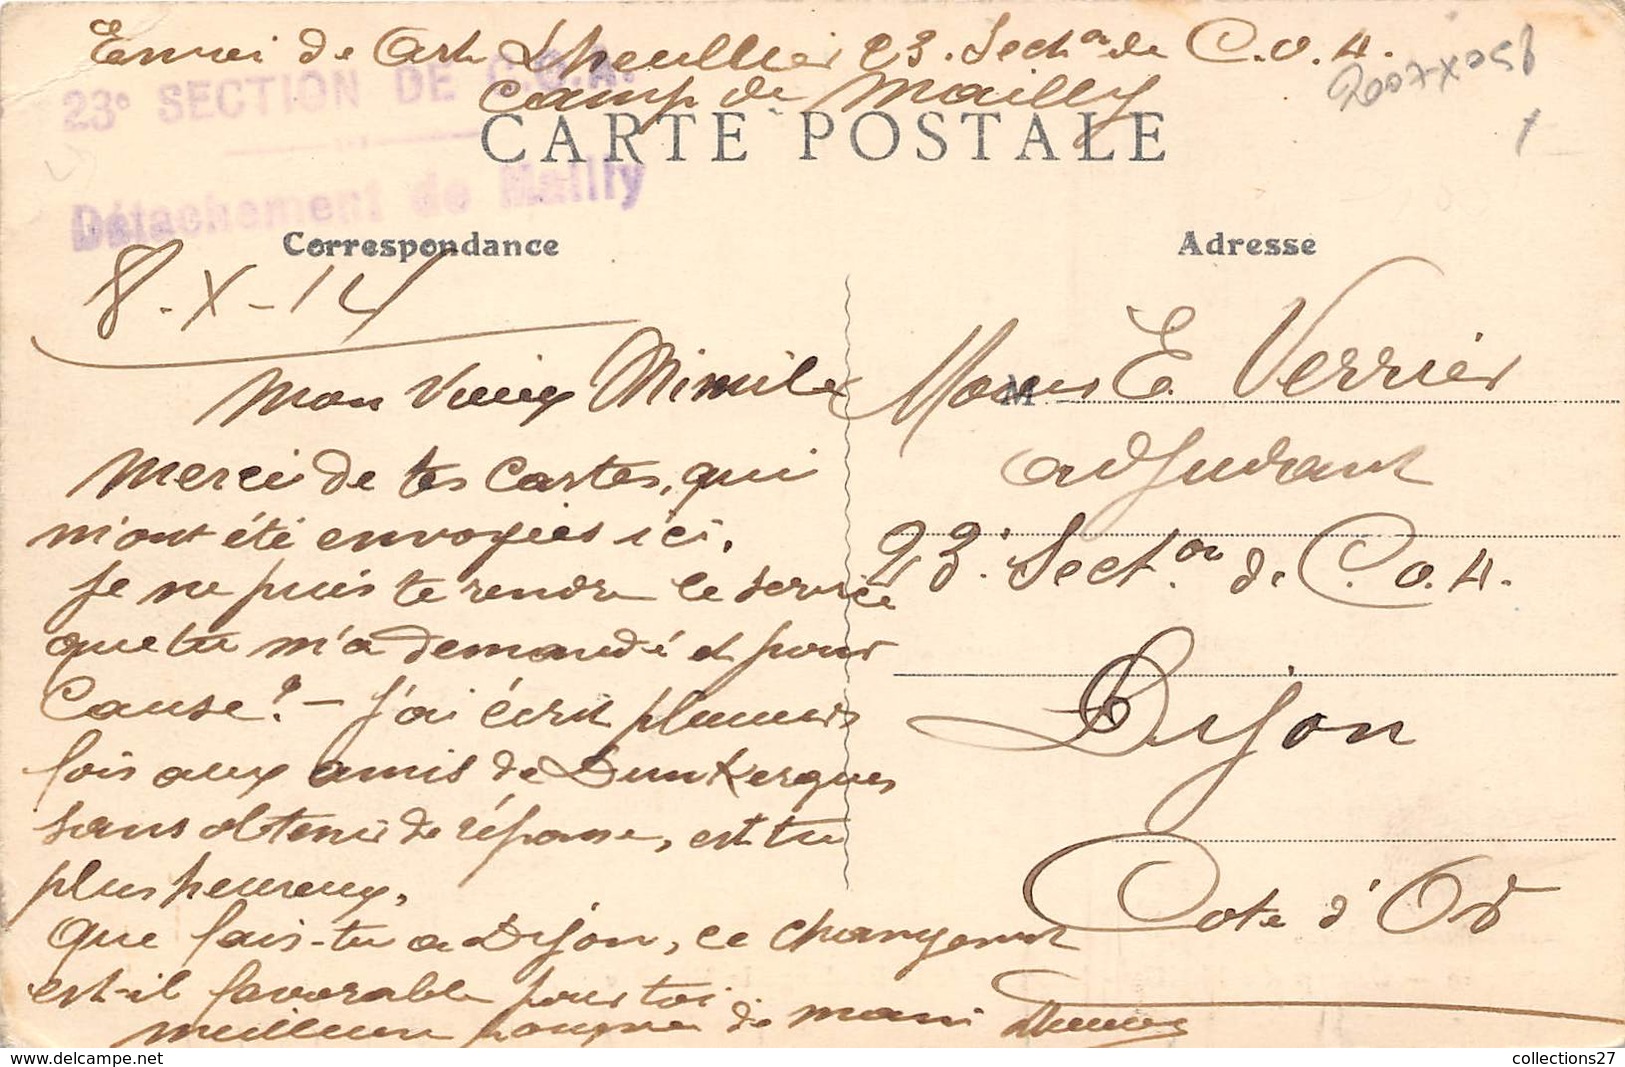 Envoi de Art Lheullier 23e Secton de C.O.A.
Camp de Mailly
2007X051
23e SECTION DE C.O.A.
Détachement de Mailly
CARTE POSTALE
Correspondance
Adresse
8-X-14
Mon Vieux Mimile
Merci de tes Cartes, qui
m'ont été envoyées ici.
Je ne puis te rendre le service
que tu m'a demandé et pour
Cause! - J'ai écrit plusieurs
fois aux amis de Dunkerques
sans obtenir de réponse, est tu
plus heureux.
Que fais-tu a Dijon, ce changement
est-il favorable pour toi
meilleure de main
M
Monsieur E. Verrier
adjudant
23e Secton de C.O.A.
Dijon
Cote d'Or
collections27